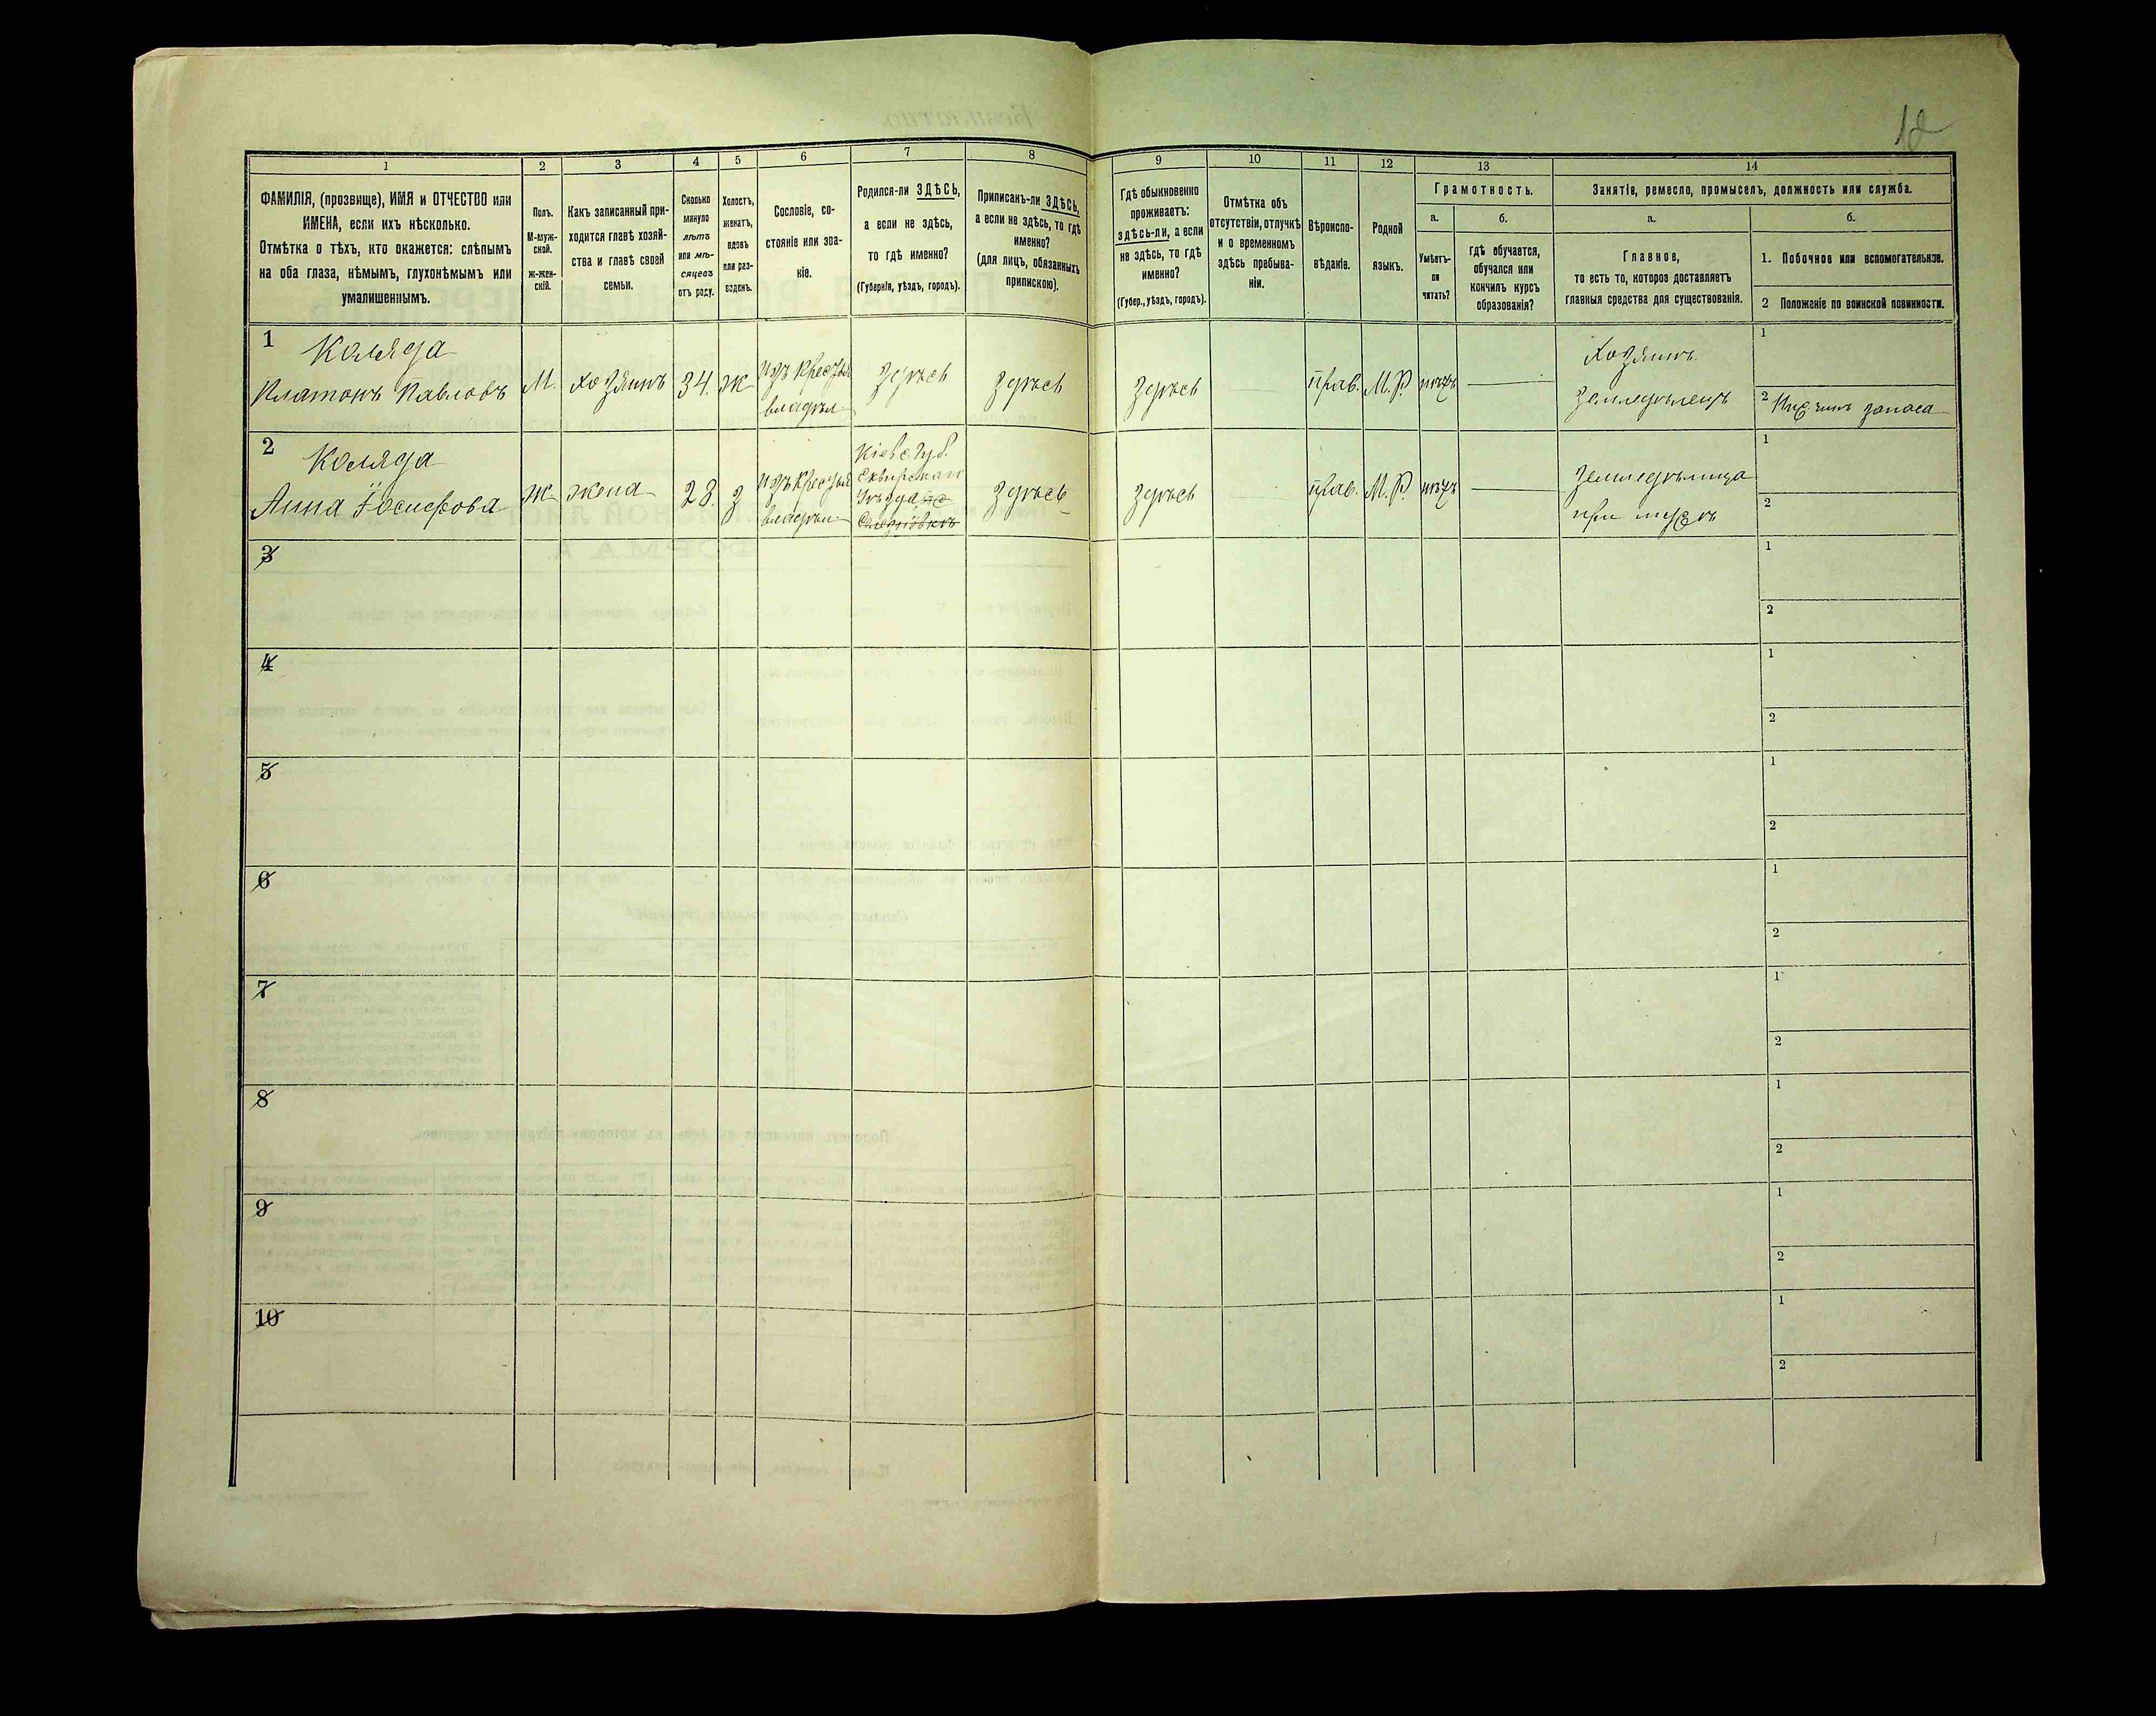 18
1 2 3 4 5 6 7 8 9 10 11 12 13 14
ФАМИЛІЯ, (прозвище), ИМЯ и ОТЧЕСТВО или
ИМЕНА, если ихъ нѣсколько.
Отмѣтка о тѣхъ, кто окажется: слѣпымъ
на оба глаза, нѣмымъ, глухонѣмымъ или
умалишеннымъ.
Полъ.
М-муж-
ской.
Ж-жен-
скій.
Какъ записанный при-
ходится главѣ хозяй-
ства и главѣ своей
семьи.
Сколько
минуло
лѣтъ
или мѣ-
сяцевъ
отъ роду.
Холостъ,
женатъ,
вдовъ
или раз-
веденъ.
Сословіе, со-
стояніе или зва-
ніе.
Родился-ли ЗДѢСЬ,
а если не здѣсь,
то гдѣ именно?
(Губернія, уѣздъ, городъ).
Приписанъ-ли ЗДѢСЬ,
а если не здѣсь, то гдѣ
именно?
(для лицъ, обязанныхъ
припискою).
Гдѣ обыкновенно
проживаетъ:
здѣсь-ли, а если
не здѣсь, то гдѣ
именно?
(Губер., уѣздъ, городъ).
Отмѣтка объ
отсутствіи, отлучкѣ
и о временномъ
здѣсь пребыва-
ніи.
Вѣроиспо-
вѣданіе.
Родной
языкъ.
Грамотность.
а.
Умѣетъ-
ли
читать?
б.
гдѣ обучается,
обучался или
кончилъ курсъ
образованія?
Занятія, ремесло, промыселъ, должность или служба.
а.
Главное,
то есть то, которое доставляетъ
главныя средства для существованія.
б.
1. Побочное или вспомогательное.
2 Положеніе по воинской повинности.
1 Коляда
Платонъ Павловъ
М.
хозяинъ
34.
ж
изъ Крестья
владѣл
здѣсь
здѣсь
здѣсь
прав.
М.Р.
нѣтъ
Хозяинъ
Земледѣлецъ
1
2 Ни чинъ запаса
2 Коляда
Анна Іосифова
ж
жена
28.
з
изъ Крестья
владѣл
Кіевс. Губ.
Сквирскаго
Уѣзда
здѣсь
здѣсь
прав.
М.Р.
нѣтъ
Земледѣлица
при мужѣ
1
2
3
1
2
4
1
2
5
1
2
6
1
2
7
1
2
8
1
2
9
1
2
10
1
2